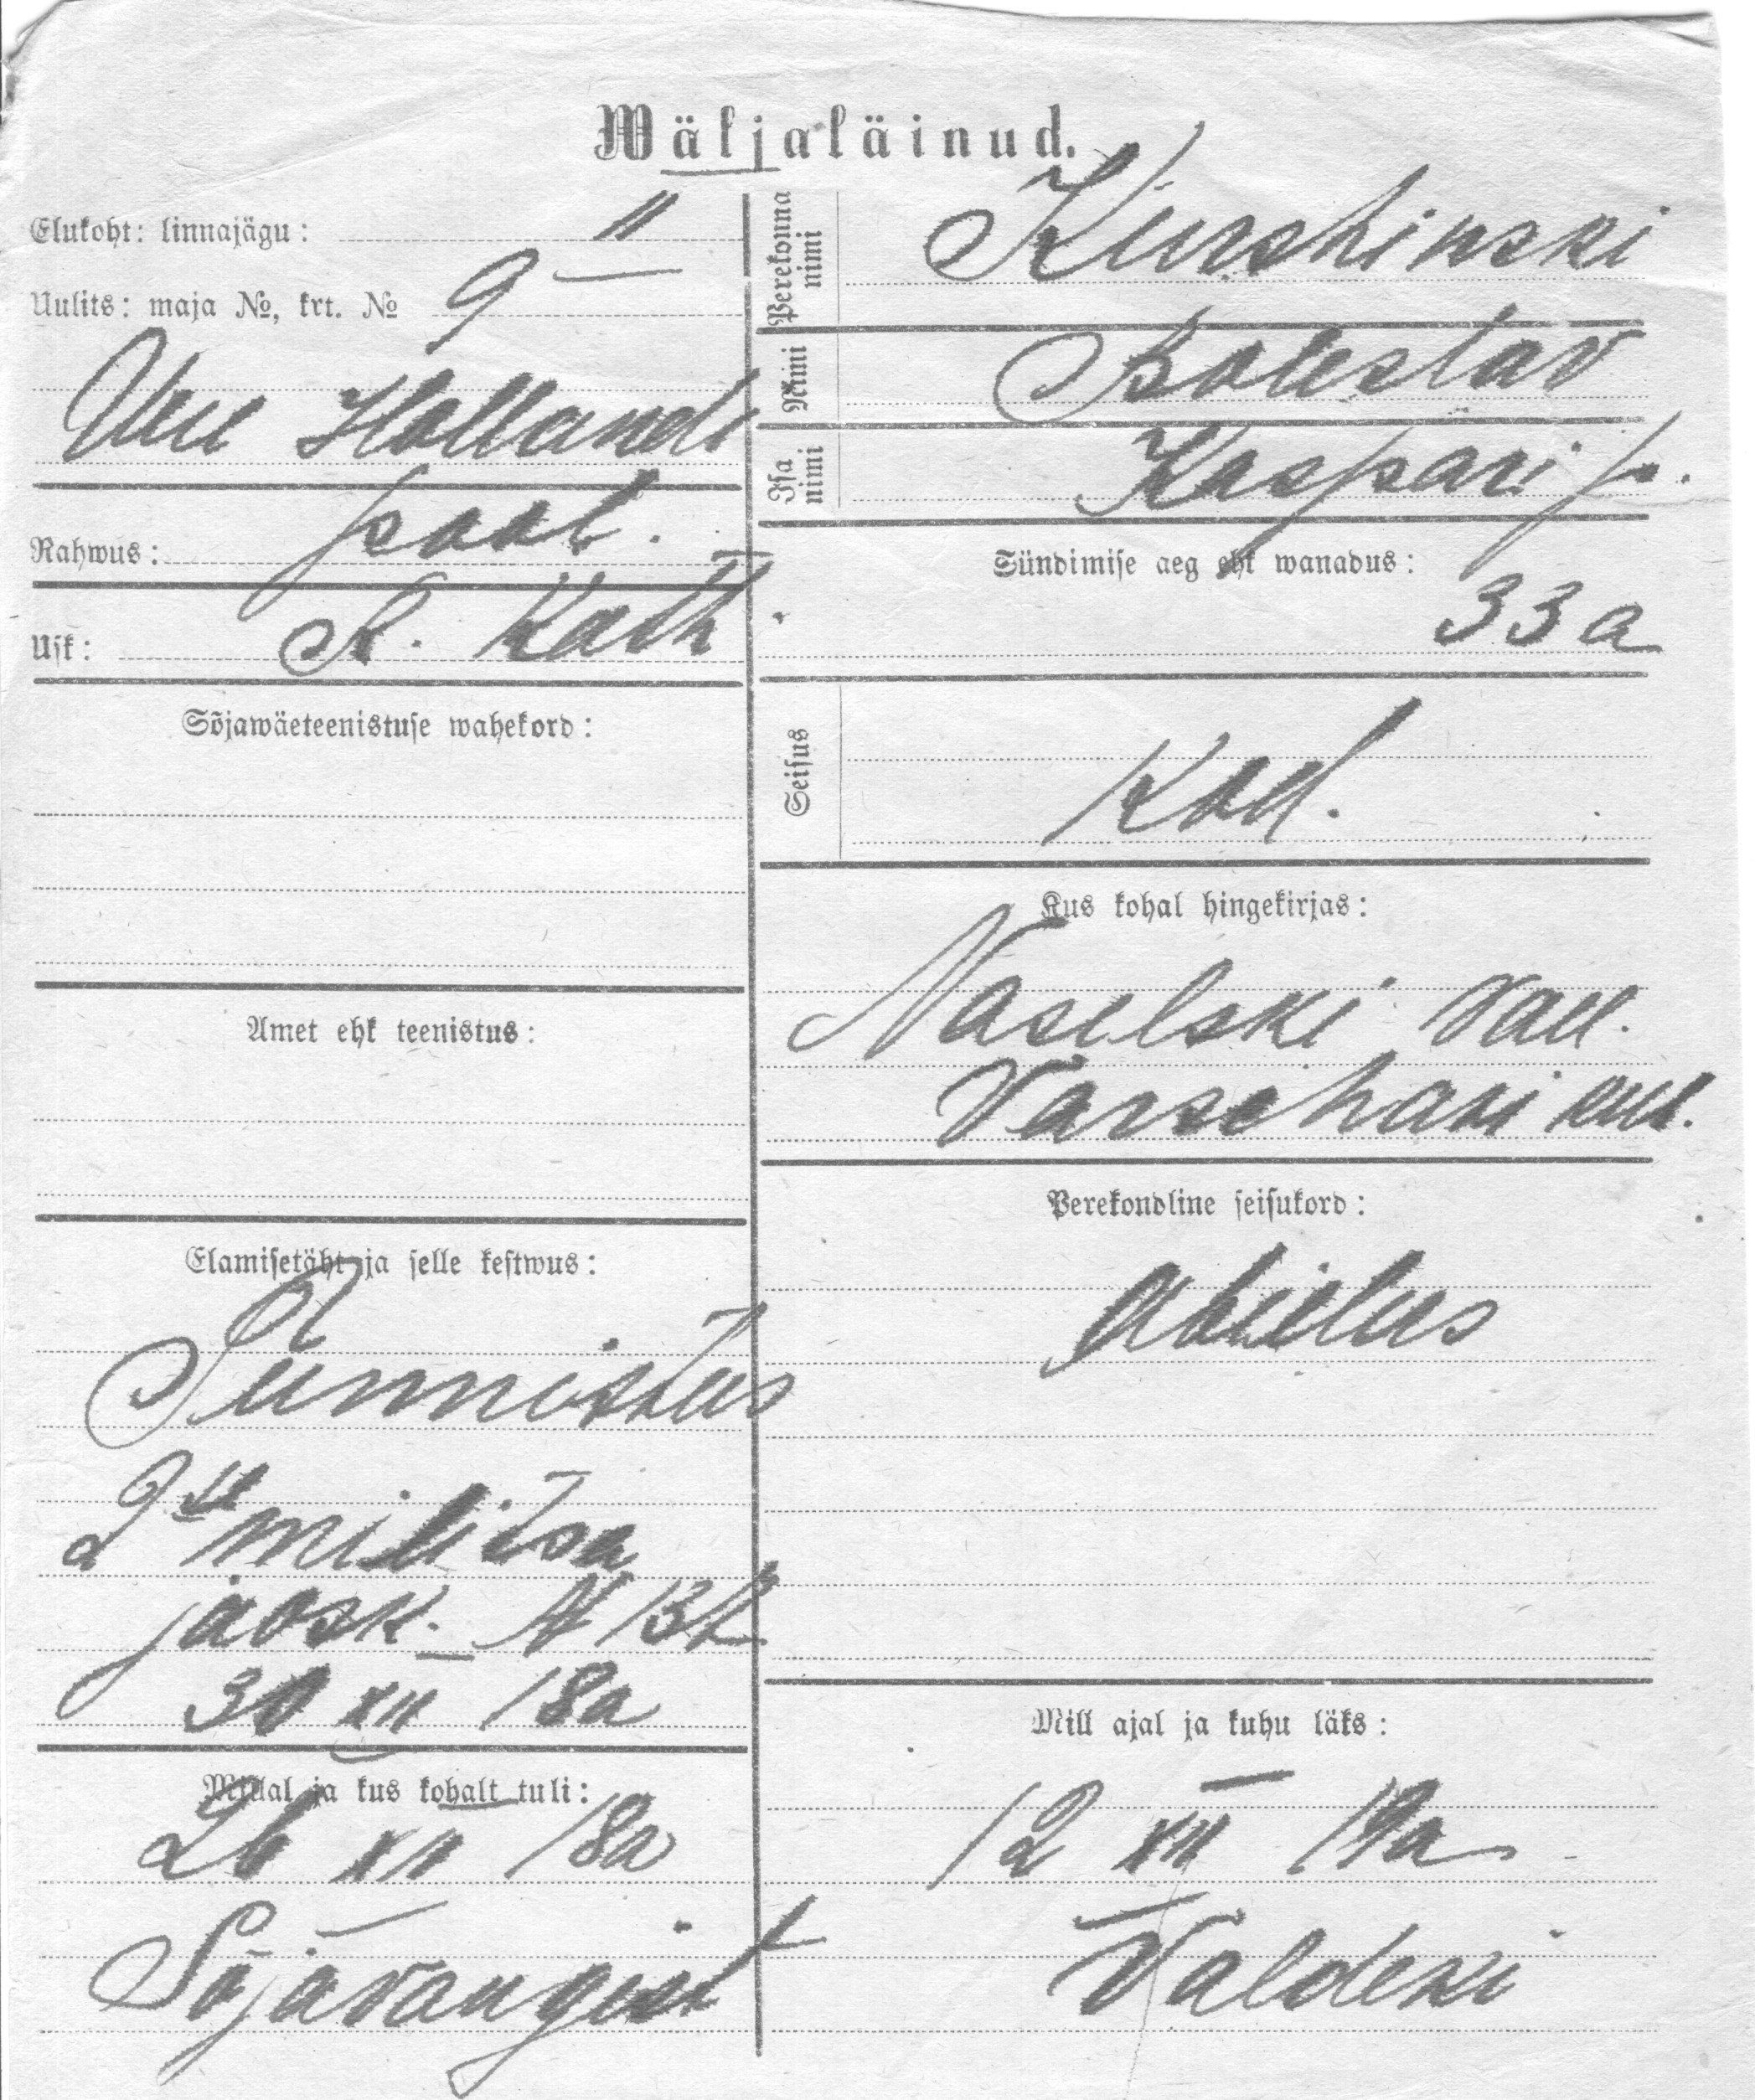 Wäljaläinud.
Elukoht: linnajägu: II
Uulits: maja №, krt. № 9 —
Uue Hollandi
Rahwus: pool.
Usk: R. Kath.
Sõjawäeteenistuse wahekord:
Amet ehk teenistus:
Elamisetäht ja selle kestwus:
Tunnistus
2 militsa
jaosk.
30 XII 18a
Millal ja kus kohalt tuli:
26 XII 18a
Sõjavangist
Perekonna nimi Kurshinski
Nimi Boleslav
Isa nimi Kaspari p.
Sündimise aeg ehk wanadus:
33 a
Seisus Kod.
Kus kohal hingekirjas:
Naselski vall.
Varschavi kub.
Perekondline seisukord:
abielus
Mill ajal ja kuhu läks:
12 XII 19a
Valdeki